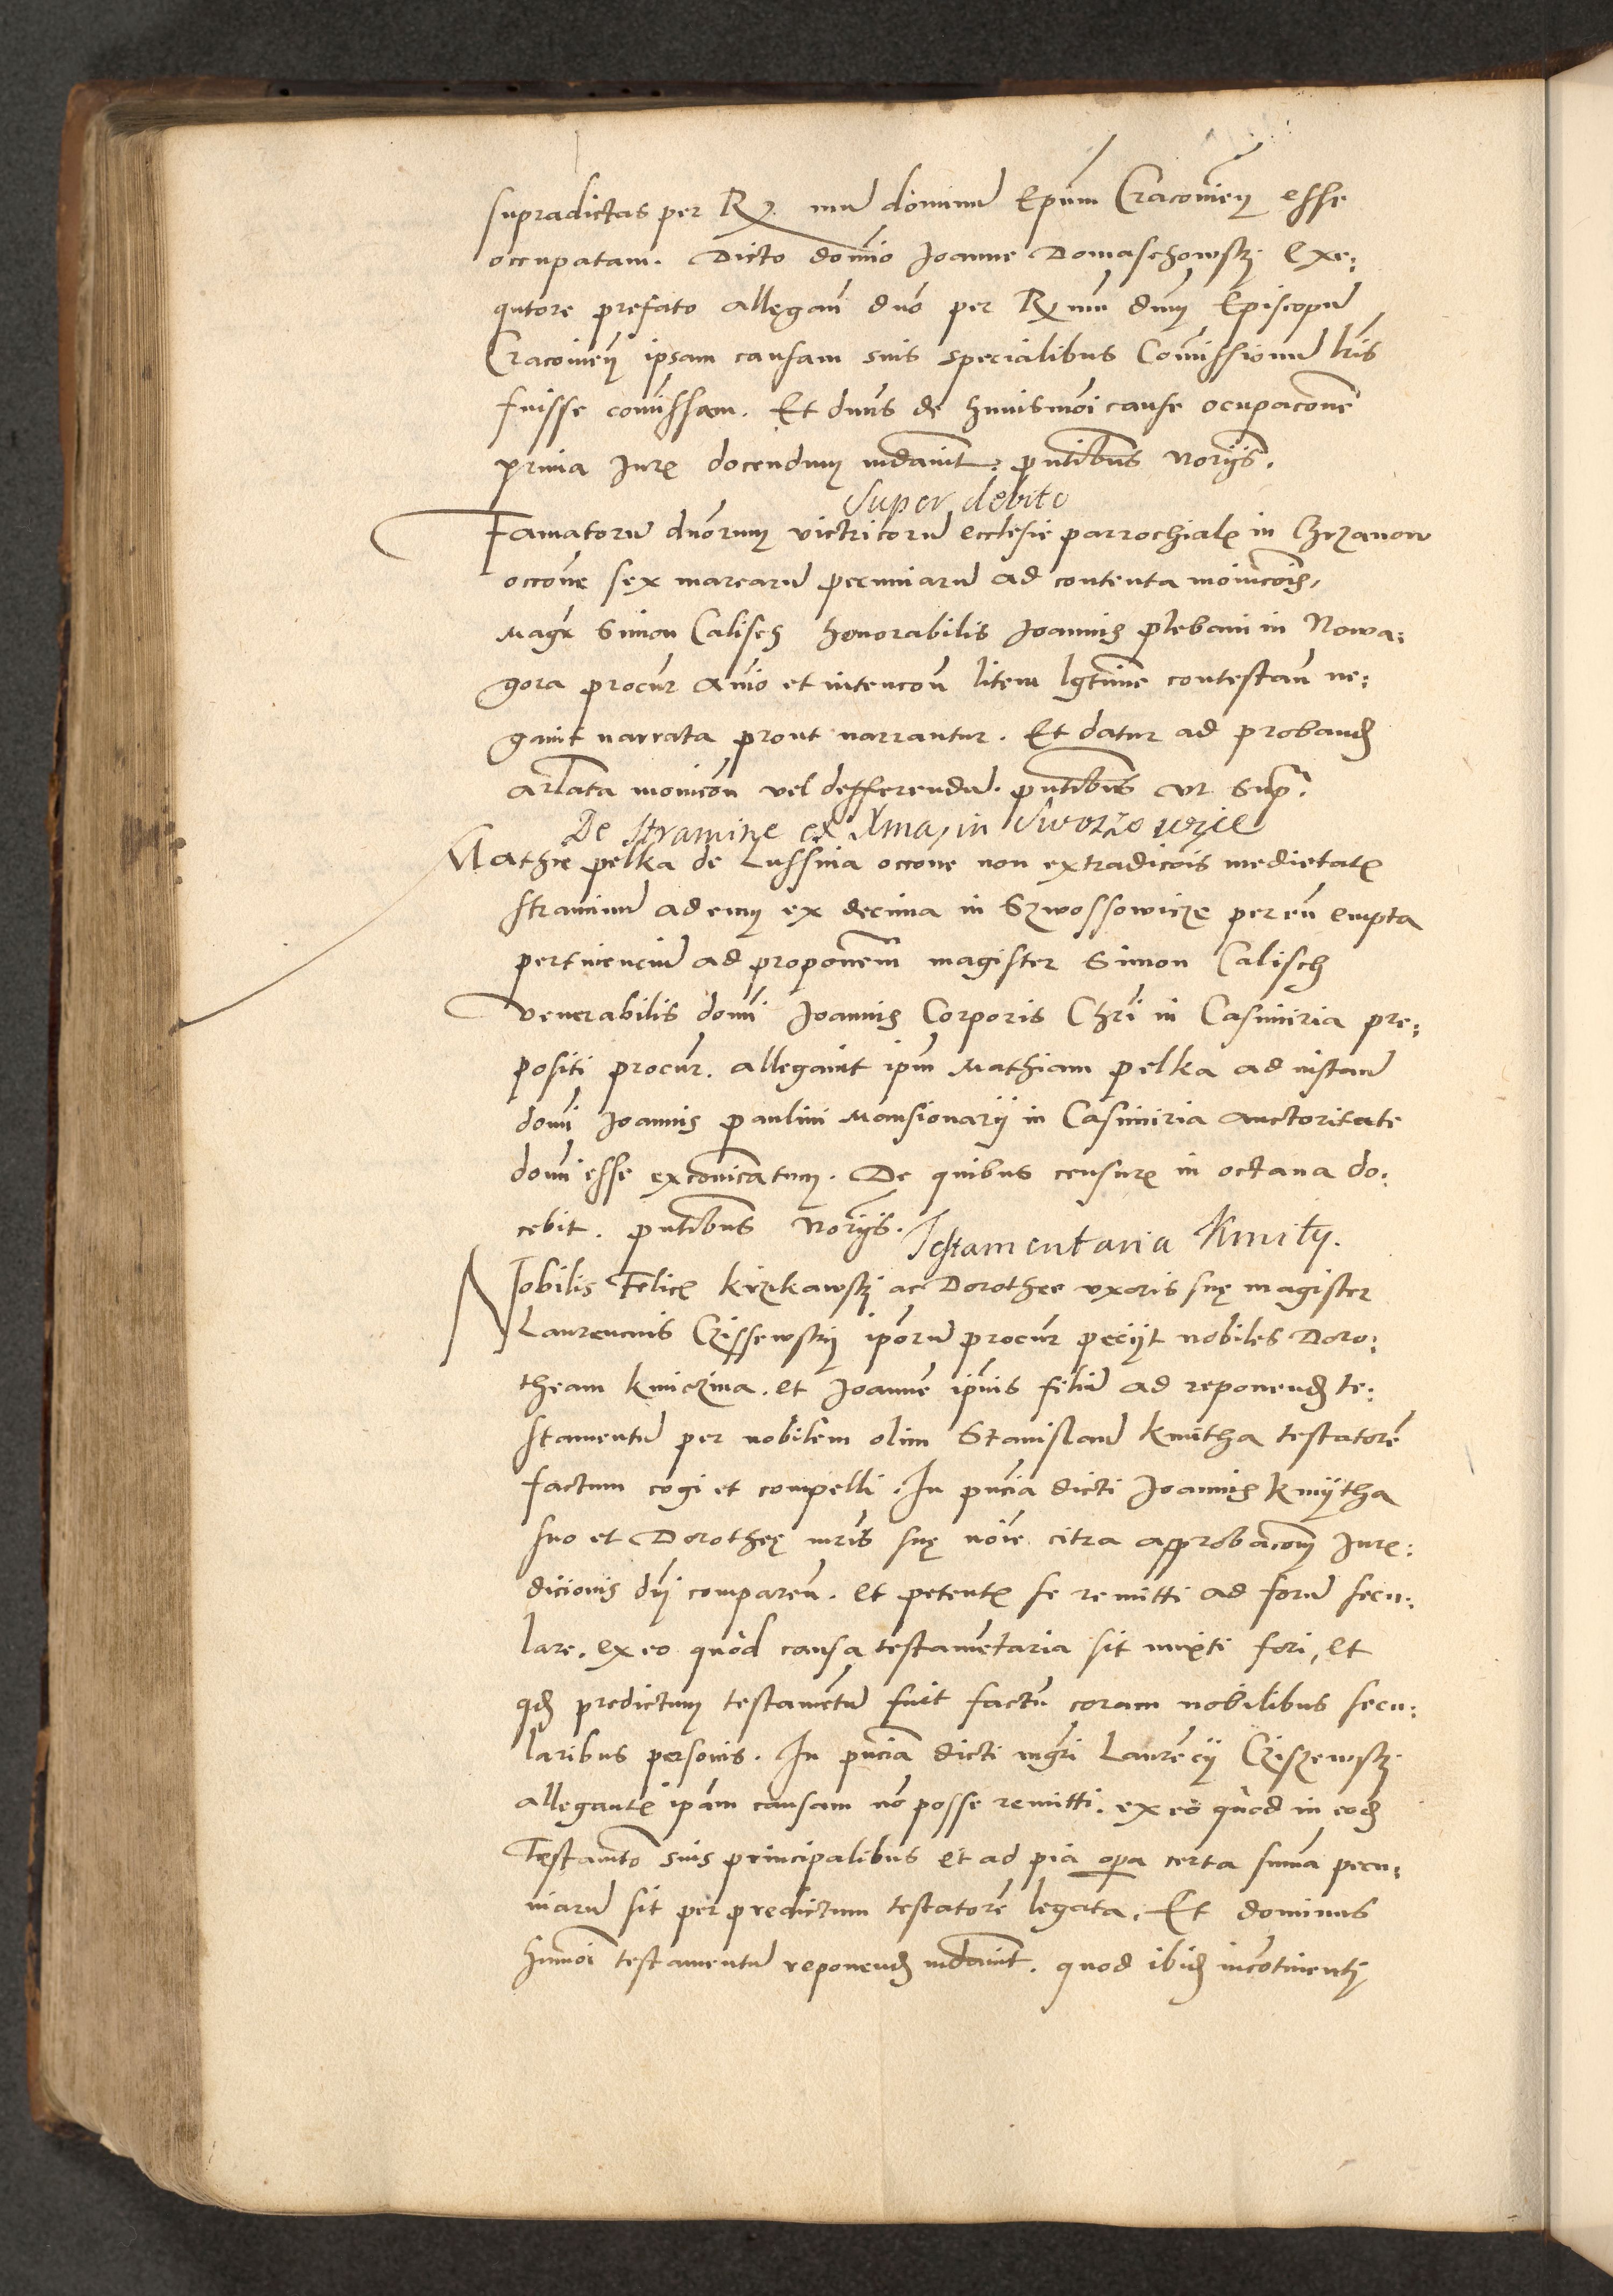 supradictas per R. mū dominū Epūm Cracovieñ esse
occupatam. Dicto domīo Joanne Domaschowskj Exe:
qutore prefato allegañ duō per R mū dnm Episcopū
Cracovieñ ipsam causam suis specialibus Comissionū lrīs
fuisse comissam. Et dnūs de huiusmōi cause ocupaconē
prima Jurͤ docendum mdavit. pntibūs Norijs.
Super debito
Famatorū dnōrum victricorū ecclesie parrochialꝭ in Chrzanow
occōne sex marcarū pecuniarū ad contenta monicōis,
Magr Simon Calisch honorabilis Joannis plebani in Nowa:
gora procur animo et intencoñ litem lgtīme contestañ ne:
gavit narrata prout narrantur. Et datur ad proband
arlata monicoñ vel defferendū. pntibūs ut supra.
De stramine ex Xma, in Swoszowicze
Mathie pelka de Lussina occone non extradicōis medietatꝭ
straminū ad eum ex decima in Szwossowicze per eū empta
pertinenciū ad proponeñ magister Simon Calisch
Venerabilis domī Joannis Corporis Chrī in Casimiria pre:
positi procur. allegavit ipm Mathiam pelka ad instanē
domī Joannis paulini Mansionarij in Casimiria auctoritate
domī esse excoīcatum. De quibus censurꝭ in octava do:
cebit. pntibūs Norijs.
Testamentaria Kmity.
Nobilis Felicꝭ Krzikawskj ac Dorothee uxoris suę magister
Laurencius Czissewskj ipōrū procur peciit nobiles Doro:
theam kmiczina. et Joannē ipīus filiū ad reponend te:
stamentū per nobilem olim Stanislaū kmitha testatorē
factum cogi et compelli. In pncia dicti Joannis kmÿtha
suo et Dorotheę mrīs suę noīe citra approbacoñ Jurꝭ:
dicionis dnī compareñ. et petentꝭ se remitti ad forū secu:
lare. ex eo quod causa testamētaria sit mixti fori, et
qd predictum testamētū fuit factū coram nobilibus secu:
laribus personis. In pncia dicti mgrī Laurēcij Cziszewskj
allegantꝭ ipām causam nō posse remitti. ex eo quod in eod
Testamto suis principalibus et ad pia opa certa suma pecu:
niarū sit per predictum testatorē legata. Et dominus
humōi testamentū reponend mdavit. quod ibid incōtinenti